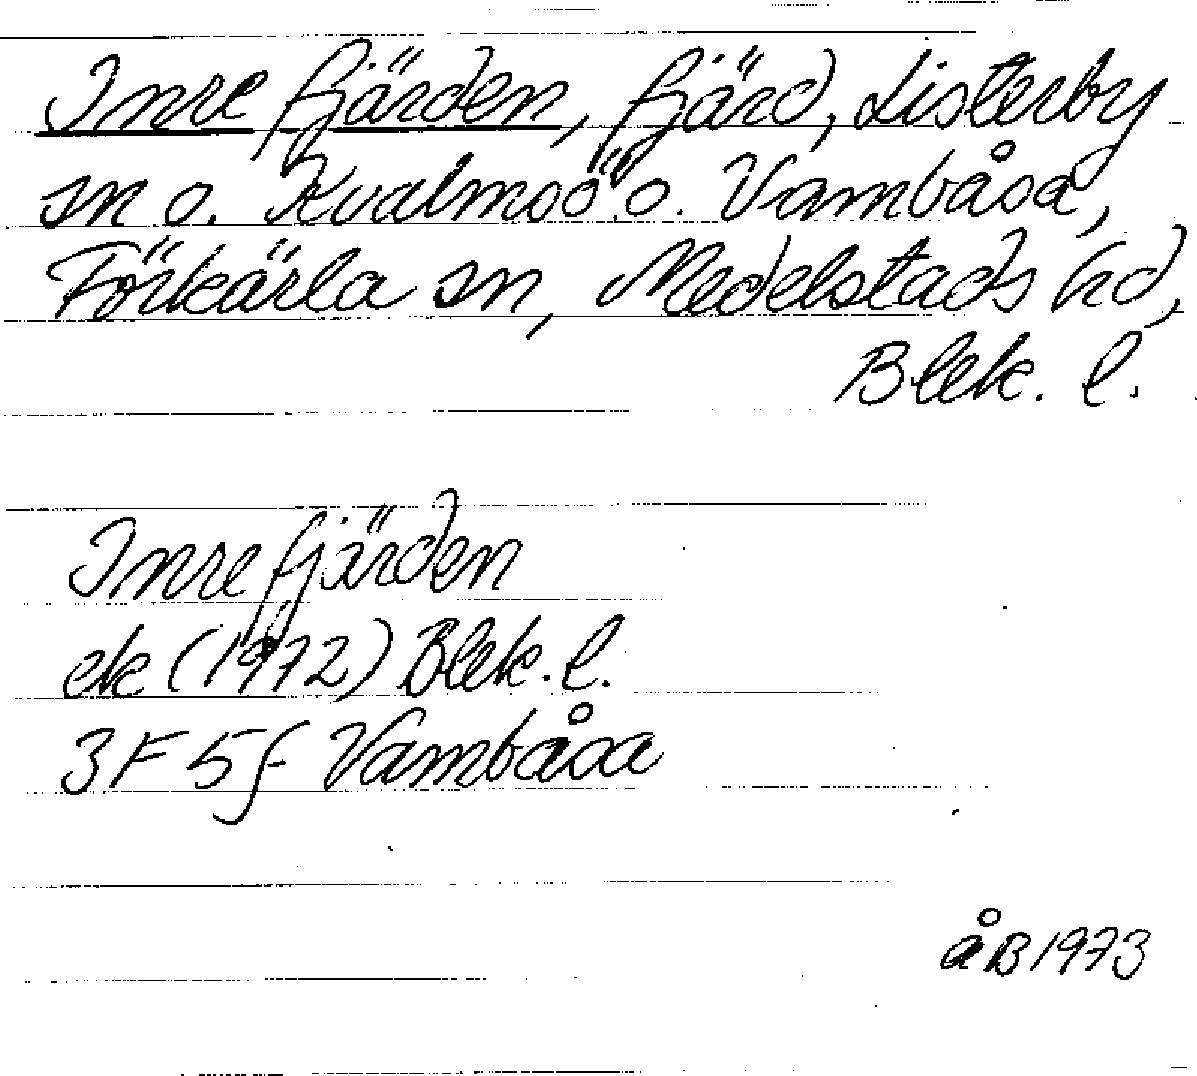 Inre fjärden, fjärd, Listerby
sn o. Kvalmsö o. Vambåsa,
Förkärla sn, Medelstads hd,
Blek. l.
Inre fjärden
ek (1972) Blek. l.
3F 5f Vambåsa
åB 1973